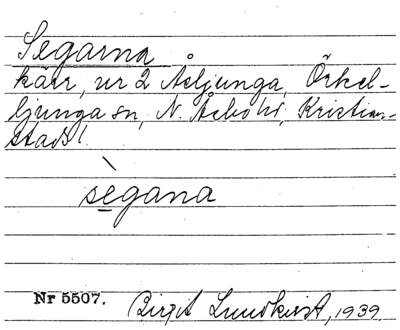 Segarna
kärr, nr 2 Åsljunga, Örkel-
ljunga sn, N. Åsbo hd, Kristian-
stads l.
sègana
Nr 5507. Birgit Lundkvist, 1939.